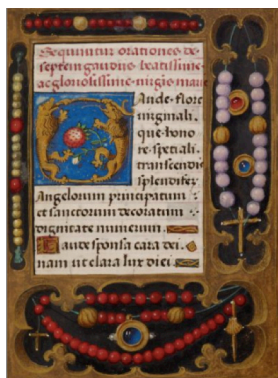 Sequuntur orationes de
septem gaudiis beatissime
ac gloriosissime virgis marie
Gaude flore
virginali.
que hono
re speciali.
transcendis
splendifer
Angelorum principatum
et sanctorum decoratum
dignitate numerum.
Gaude sponsa cara dei.
nam ut clara lux diei.